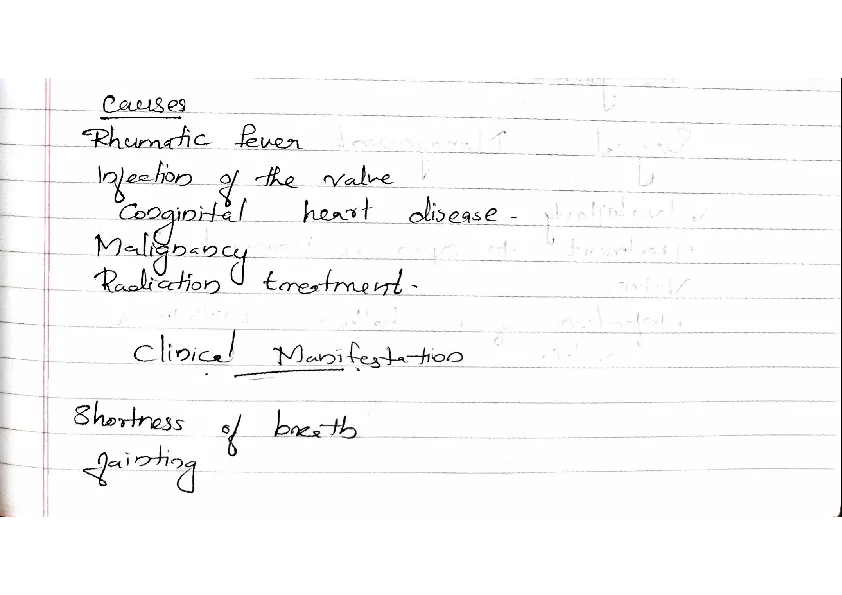 Causes
Rhumatic fever
Infection of the valve
Conginital heart disease -
Malignancy
Radiation treatment.
Clinical Manifestation
Shortness of breath
fainting